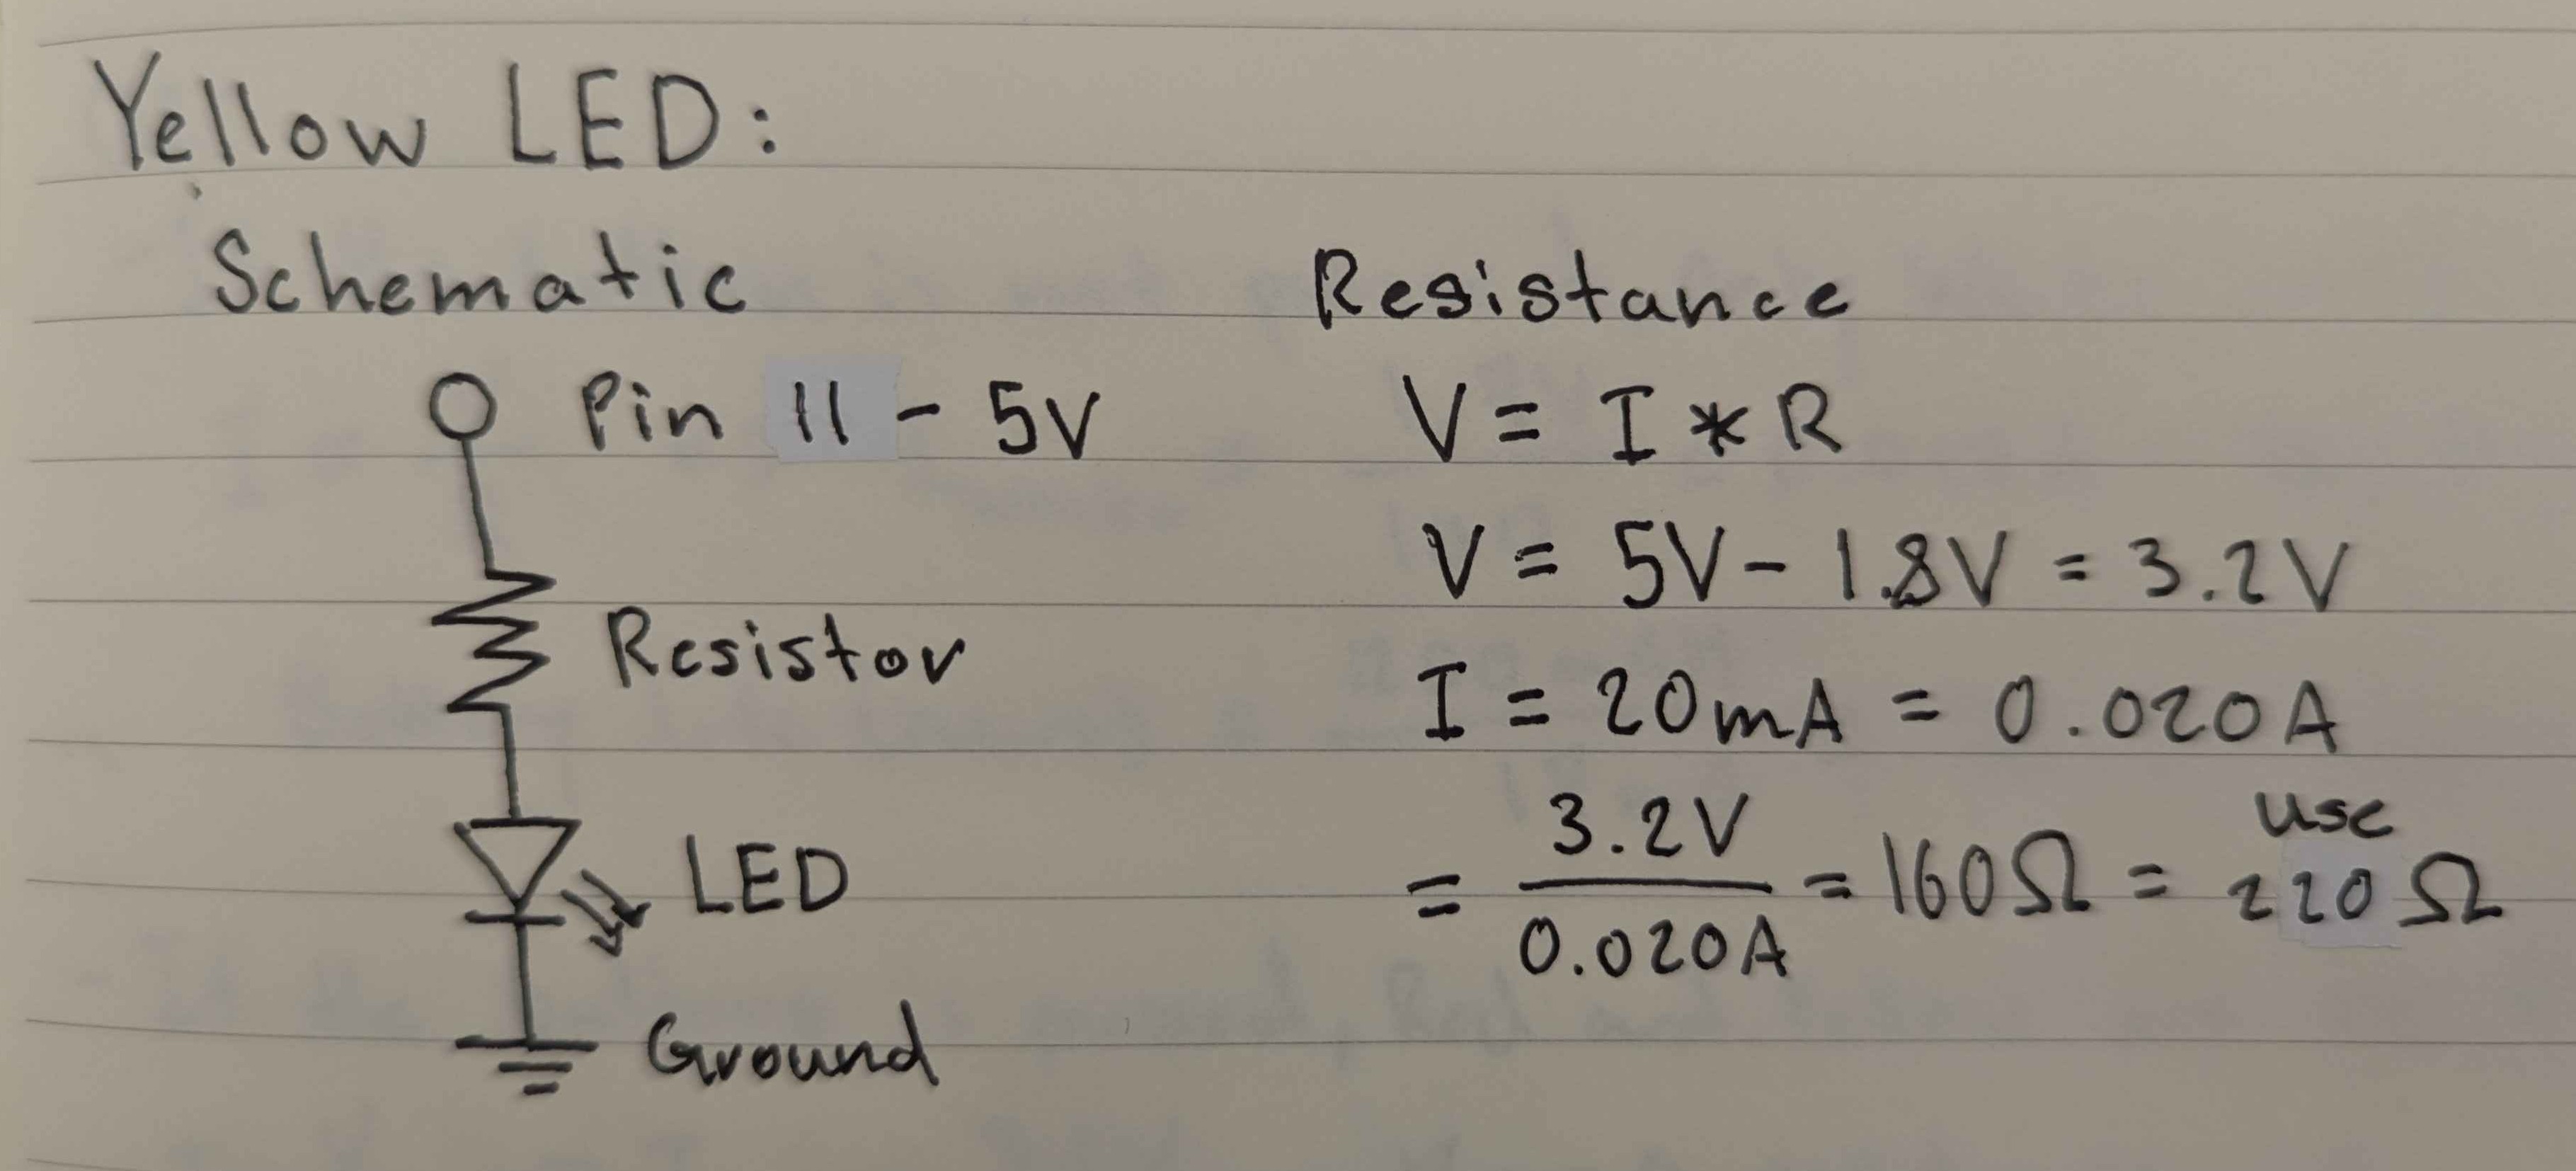 Yellow LED:
Schematic
Pin 11 - 5V
Resistor
LED
Ground
Resistance
V = I * R
V = 5V - 1.8V = 3.2V
I = 20mA = 0.020A
= 3.2V / 0.020A = 160Ω = use 220Ω